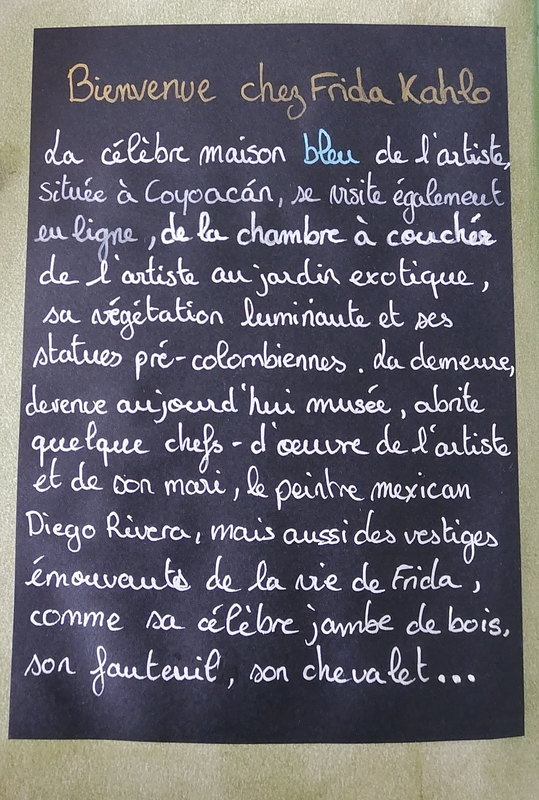 Bienvenue chez Frida Kahlo
La célèbre maison bleu de l'artiste,
située à Coyoacán, se visite également
en ligne, de la chambre à couchér
de l'artiste au jardin exotique,
sa végétation luminante et ses
statues pré-colombiennes. La demeure,
devenue aujourd'hui musée, abrite
quelque chefs-d'œuvre de l'artiste
et de son mari, le peintre mexican
Diego Rivera, mais aussi des vestiges
émouvants de la vie de Frida,
comme sa célèbre jambe de bois,
son fauteuil, son chevalet...